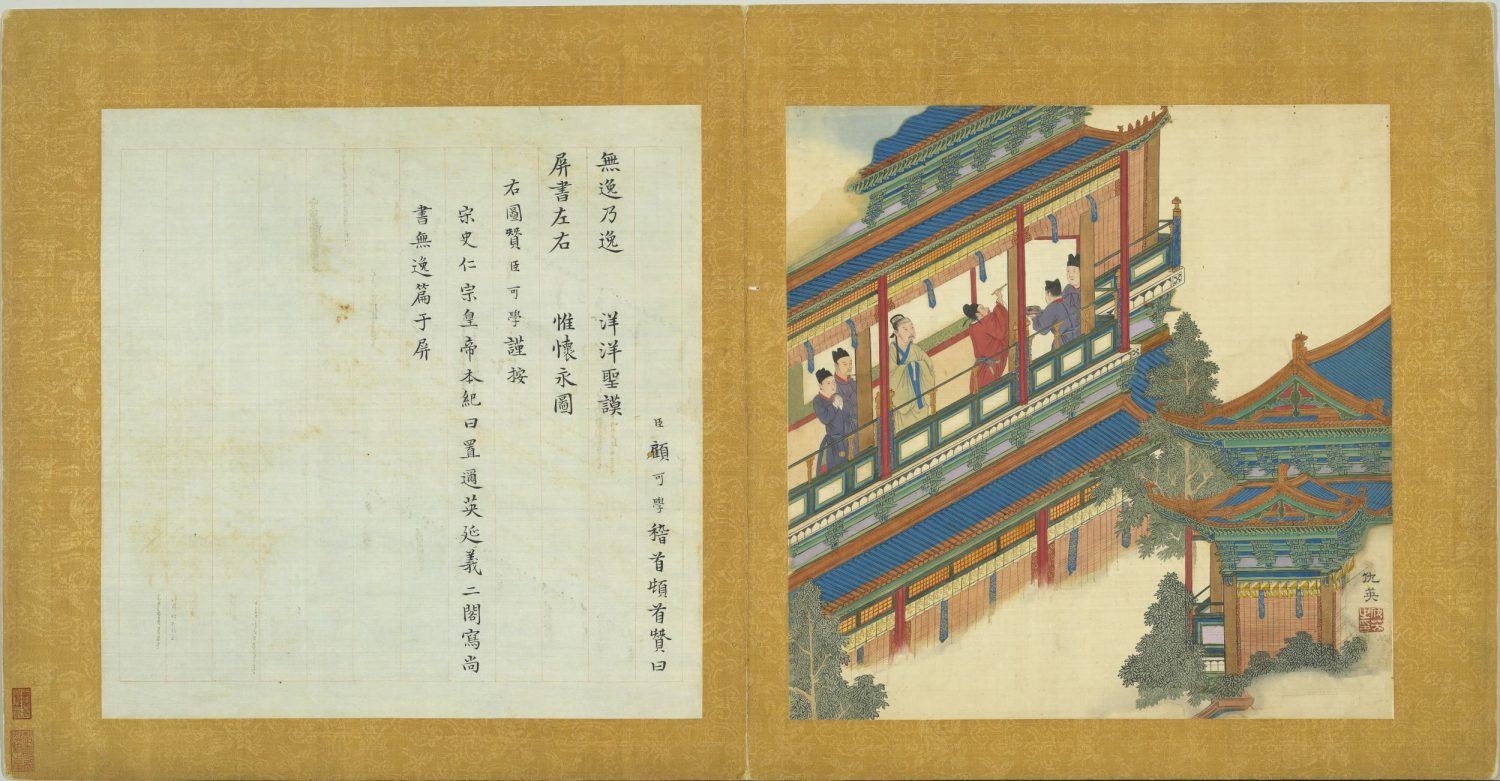 仇英
臣顧可學稽首頓首贊曰
無逸乃逸　洋洋聖謨
屏書左右　惟懷永圖
右圖贊臣可學謹按
宋史仁宗皇帝本紀曰置邇英延義二閣寫尚
書無逸篇于屏